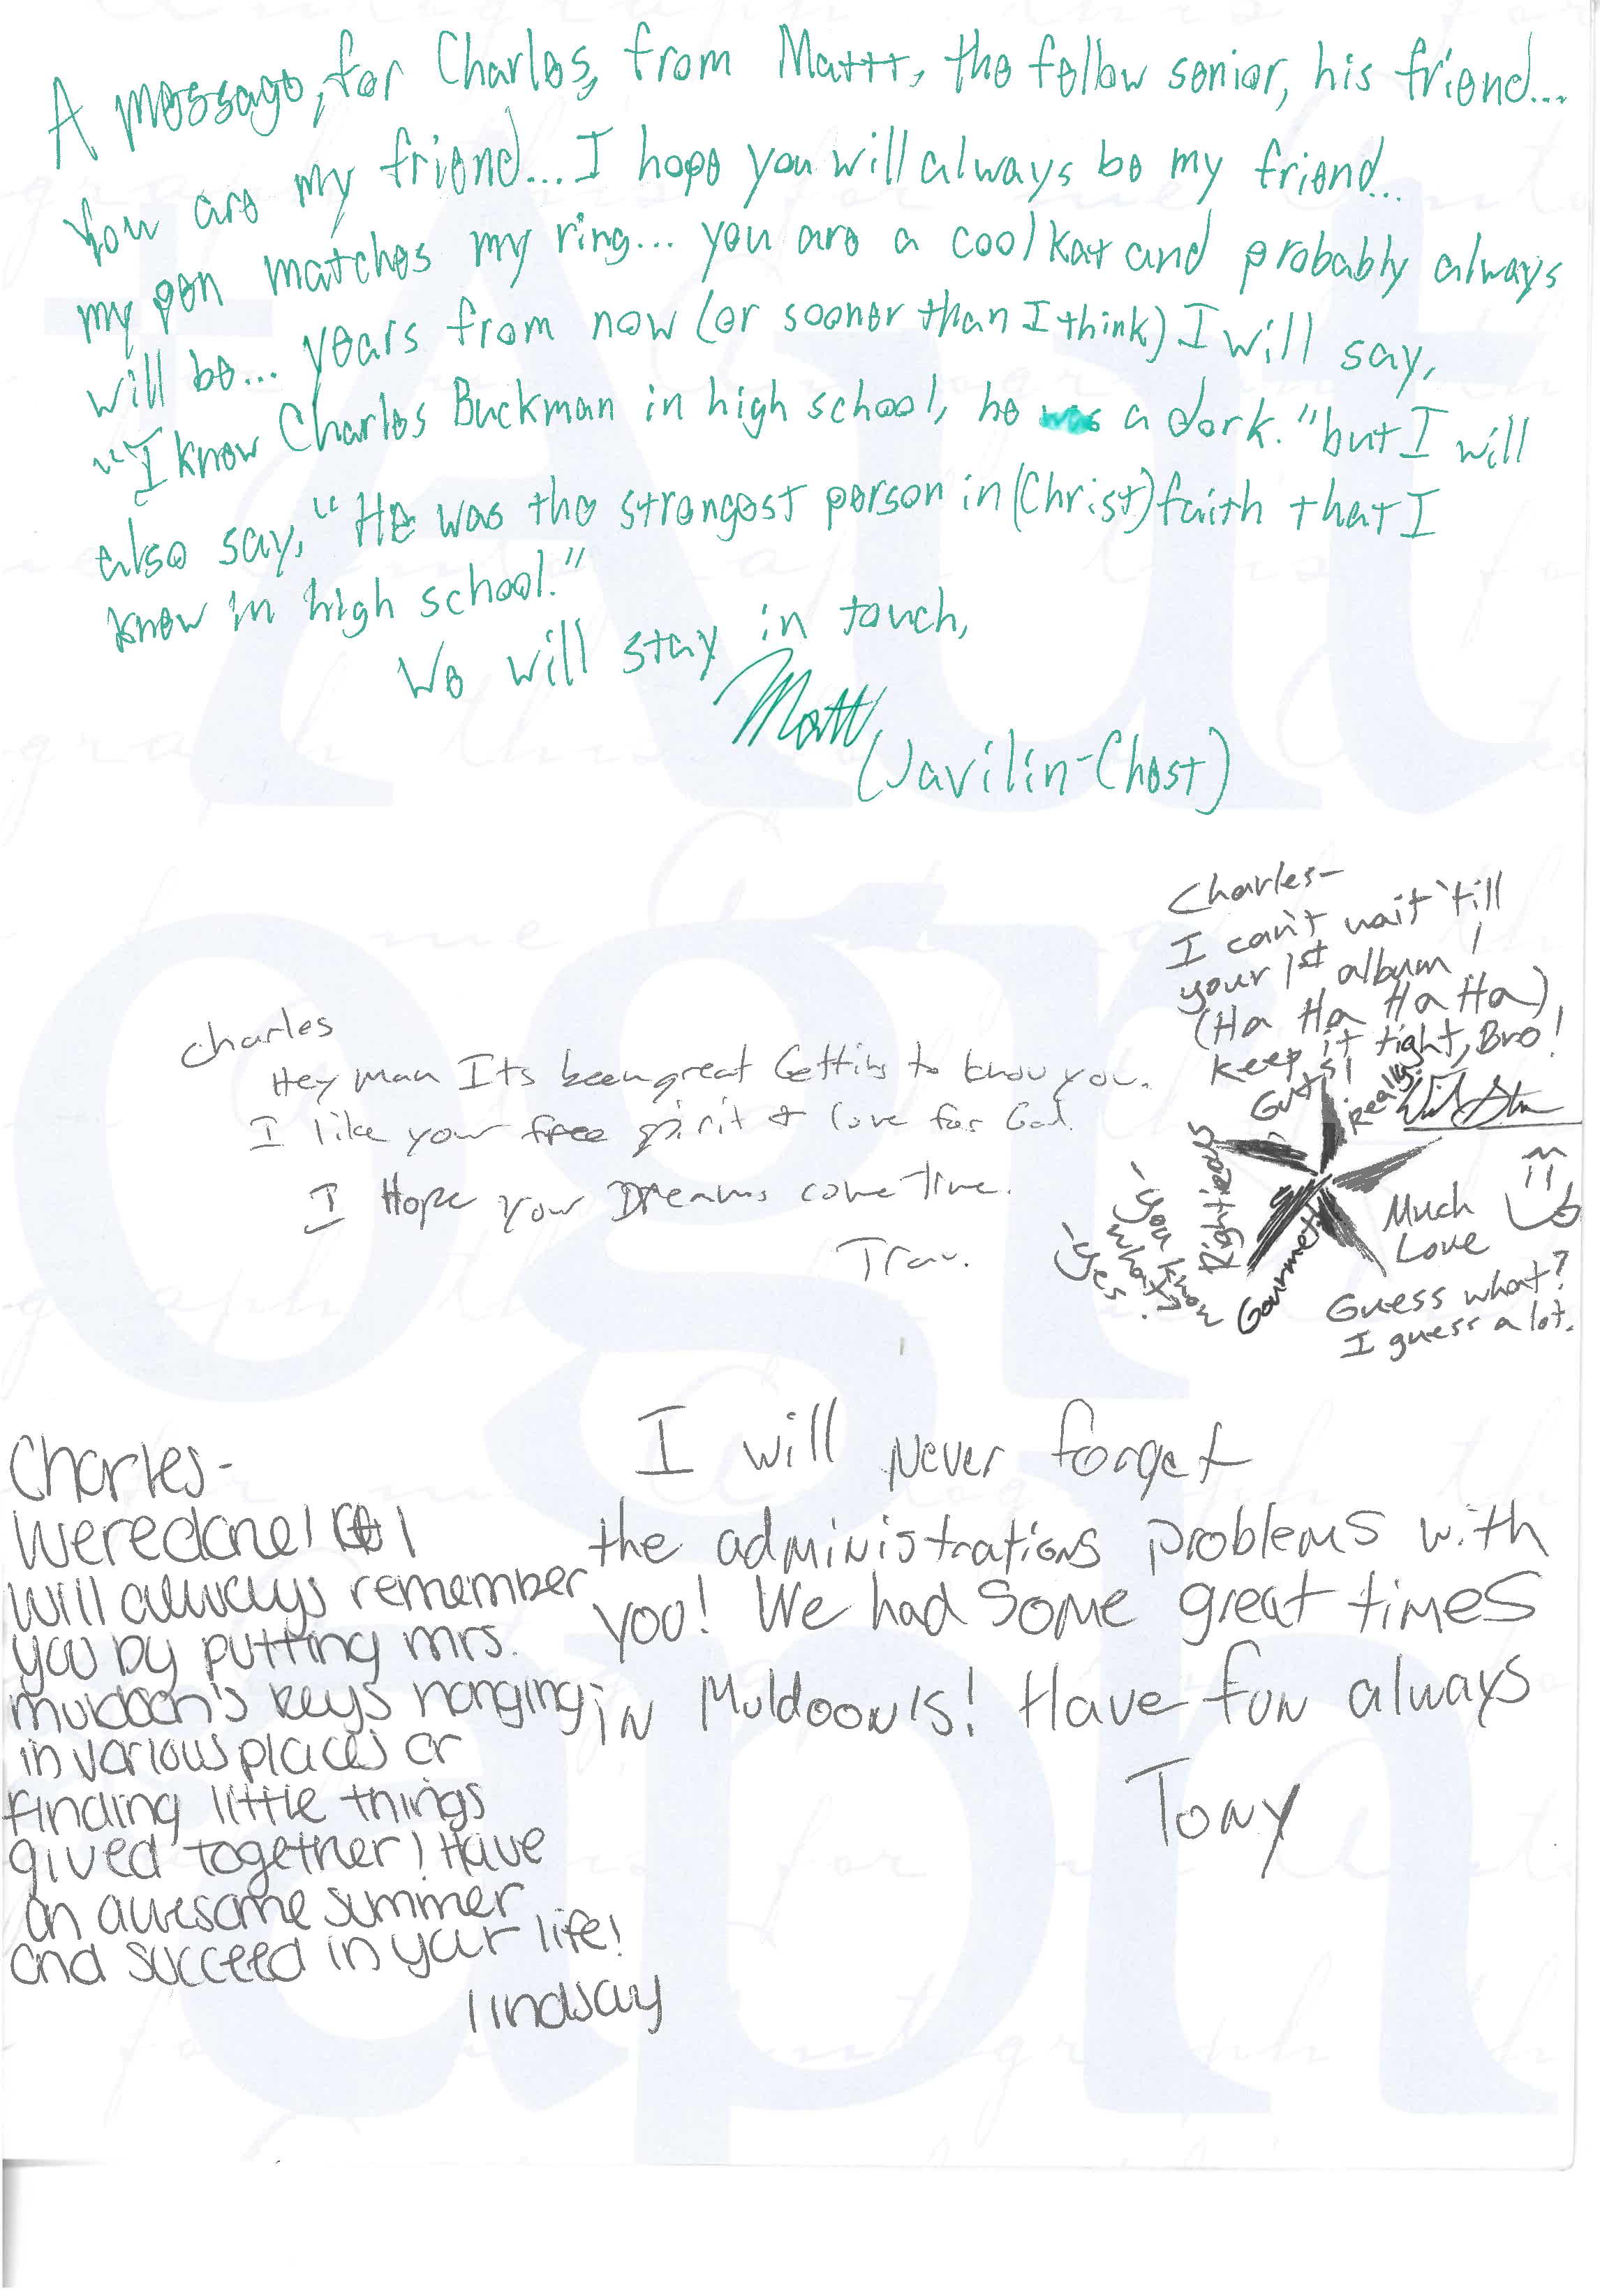 A message, for Charles, from Mattt, the fellow senior, his friend...
You are my friend... I hope you will always be my friend...
my pen matches my ring... you are a cool kat and probably always
will be... years from now (or sooner than I think) I will say,
"I know Charles Buckman in high school, he was a dork." but I will
also say, "He was the strongest person in (Christ) faith that I
knew in high school."
We will stay in touch,
Matt
(Javilin-Chest)
Charles-
I can't wait 'till
your 1st album!
(Ha Ha Ha Ha)
keep it tight, Bro!
Guts!
Really?
Righteous
Gourmet
-you know
what?
-yes.
Much
Love
Guess what?
I guess a lot.
Charles
Hey man Its been great Getting to know you.
I like your free spirit & love for God.
I Hope your Dreams come True.
Trav.
Charles-
We're done! I
will always remember
you by putting mrs.
muldoon's keys hanging
in various places or
finding little things
glued together! Have
an awesome summer
and succeed in your life!
lindsay
I will Never forget
the administrations problems with
you! We had some great times
in Muldoon's! Have fun always
Tony
Aut
ogr
aph